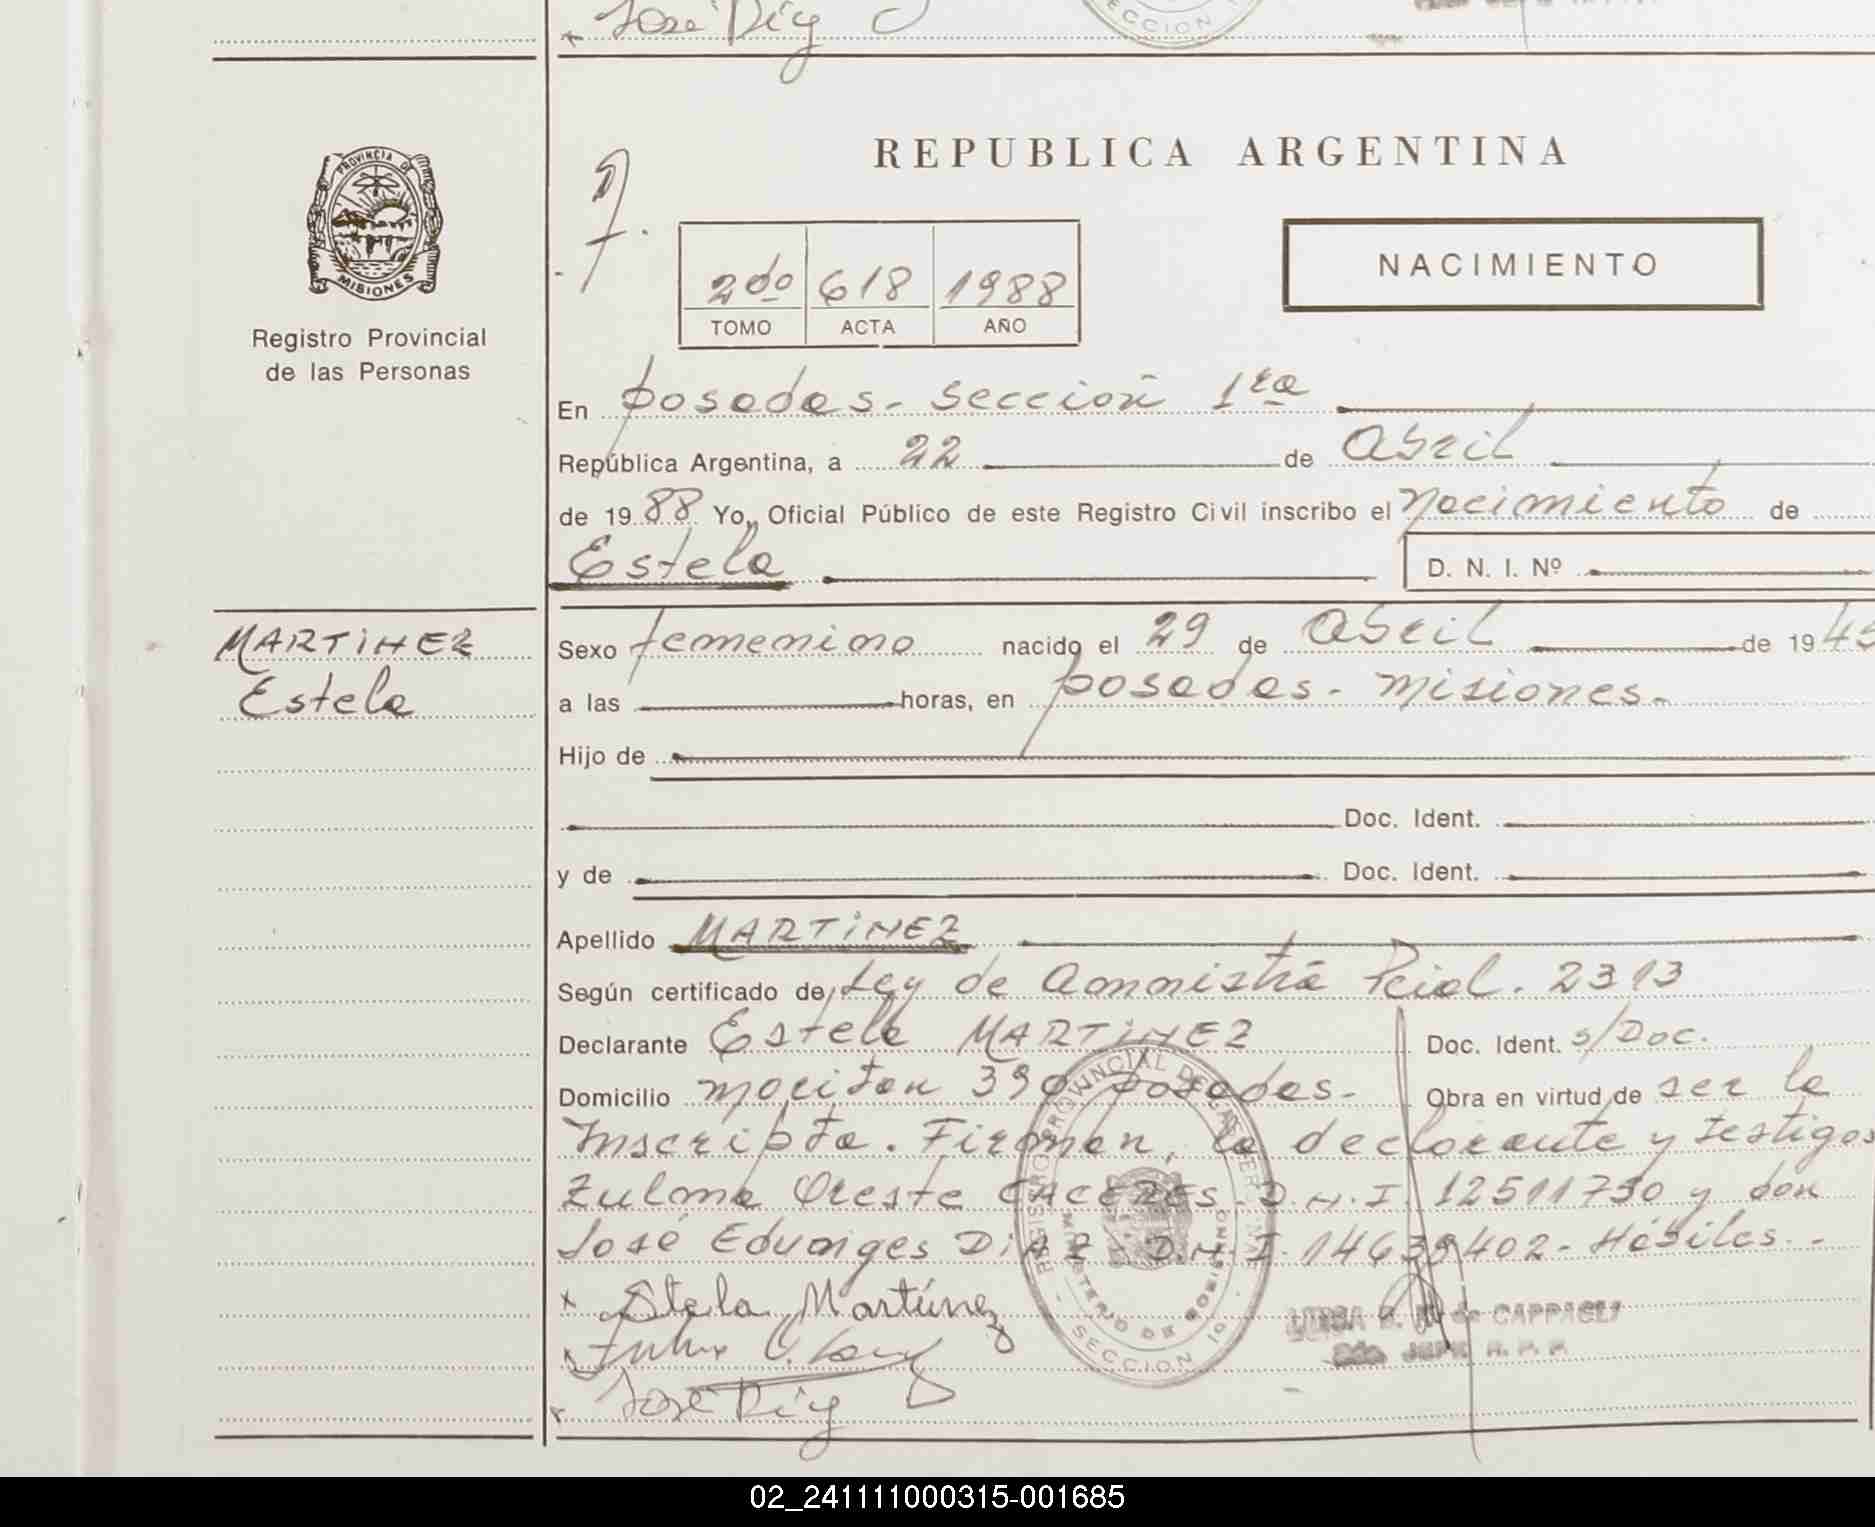 José Diaz
SECCION
PROVINCIA DE
MISIONES
Registro Provincial
de las Personas
REPUBLICA ARGENTINA
2do 618 1988
TOMO ACTA AÑO
NACIMIENTO
En posadas - sección 1ra
República Argentina, a 22 de abril
de 1988 Yo, Oficial Público de este Registro Civil inscribo el nacimiento de
Estela
D. N. I. Nº
MARTINEZ
Estela
Sexo femenino nacido el 29 de abril de 19
a las horas, en posadas - misiones -
Hijo de
Doc. Ident.
y de Doc. Ident.
Apellido MARTINEZ
Según certificado de, Ley de amnistía Pcial. 2313
Declarante Estela MARTINEZ Doc. Ident. s/Doc.
Domicilio 390 posadas - Obra en virtud de ser la
Inscripta. Firman, la declarante y testigos
Zulma Oreste CACERES - D.N.I. 12511730 y don
José Eduviges DIAZ - D.N.I. 14639402 - Hábiles. -
x Stela Martínez
José Diaz
SECCION
02_241111000315-001685